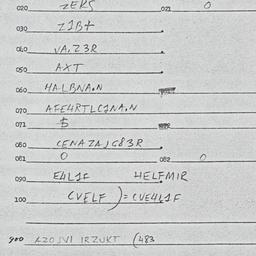 020 ZERS 021 0
030 Z1B+
040 VA.Z3R
050 AXT
060 HALBNA.N
070 AFE4RTLC1NA.N
071 $
080 CENAZAJG83R
081 0 082 0
090 E4L1F HELFMIR
100 CVELF)=CVE4L1F
900 AZOJVI IRZUKT (483